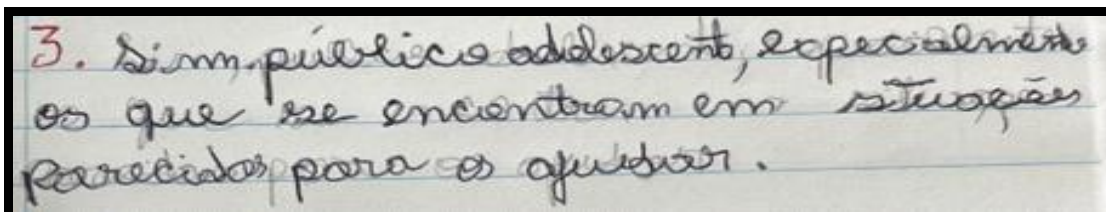 3. Sim, público adolescente, especialmente
os que se encontram em situações
parecidas para os ajudar.